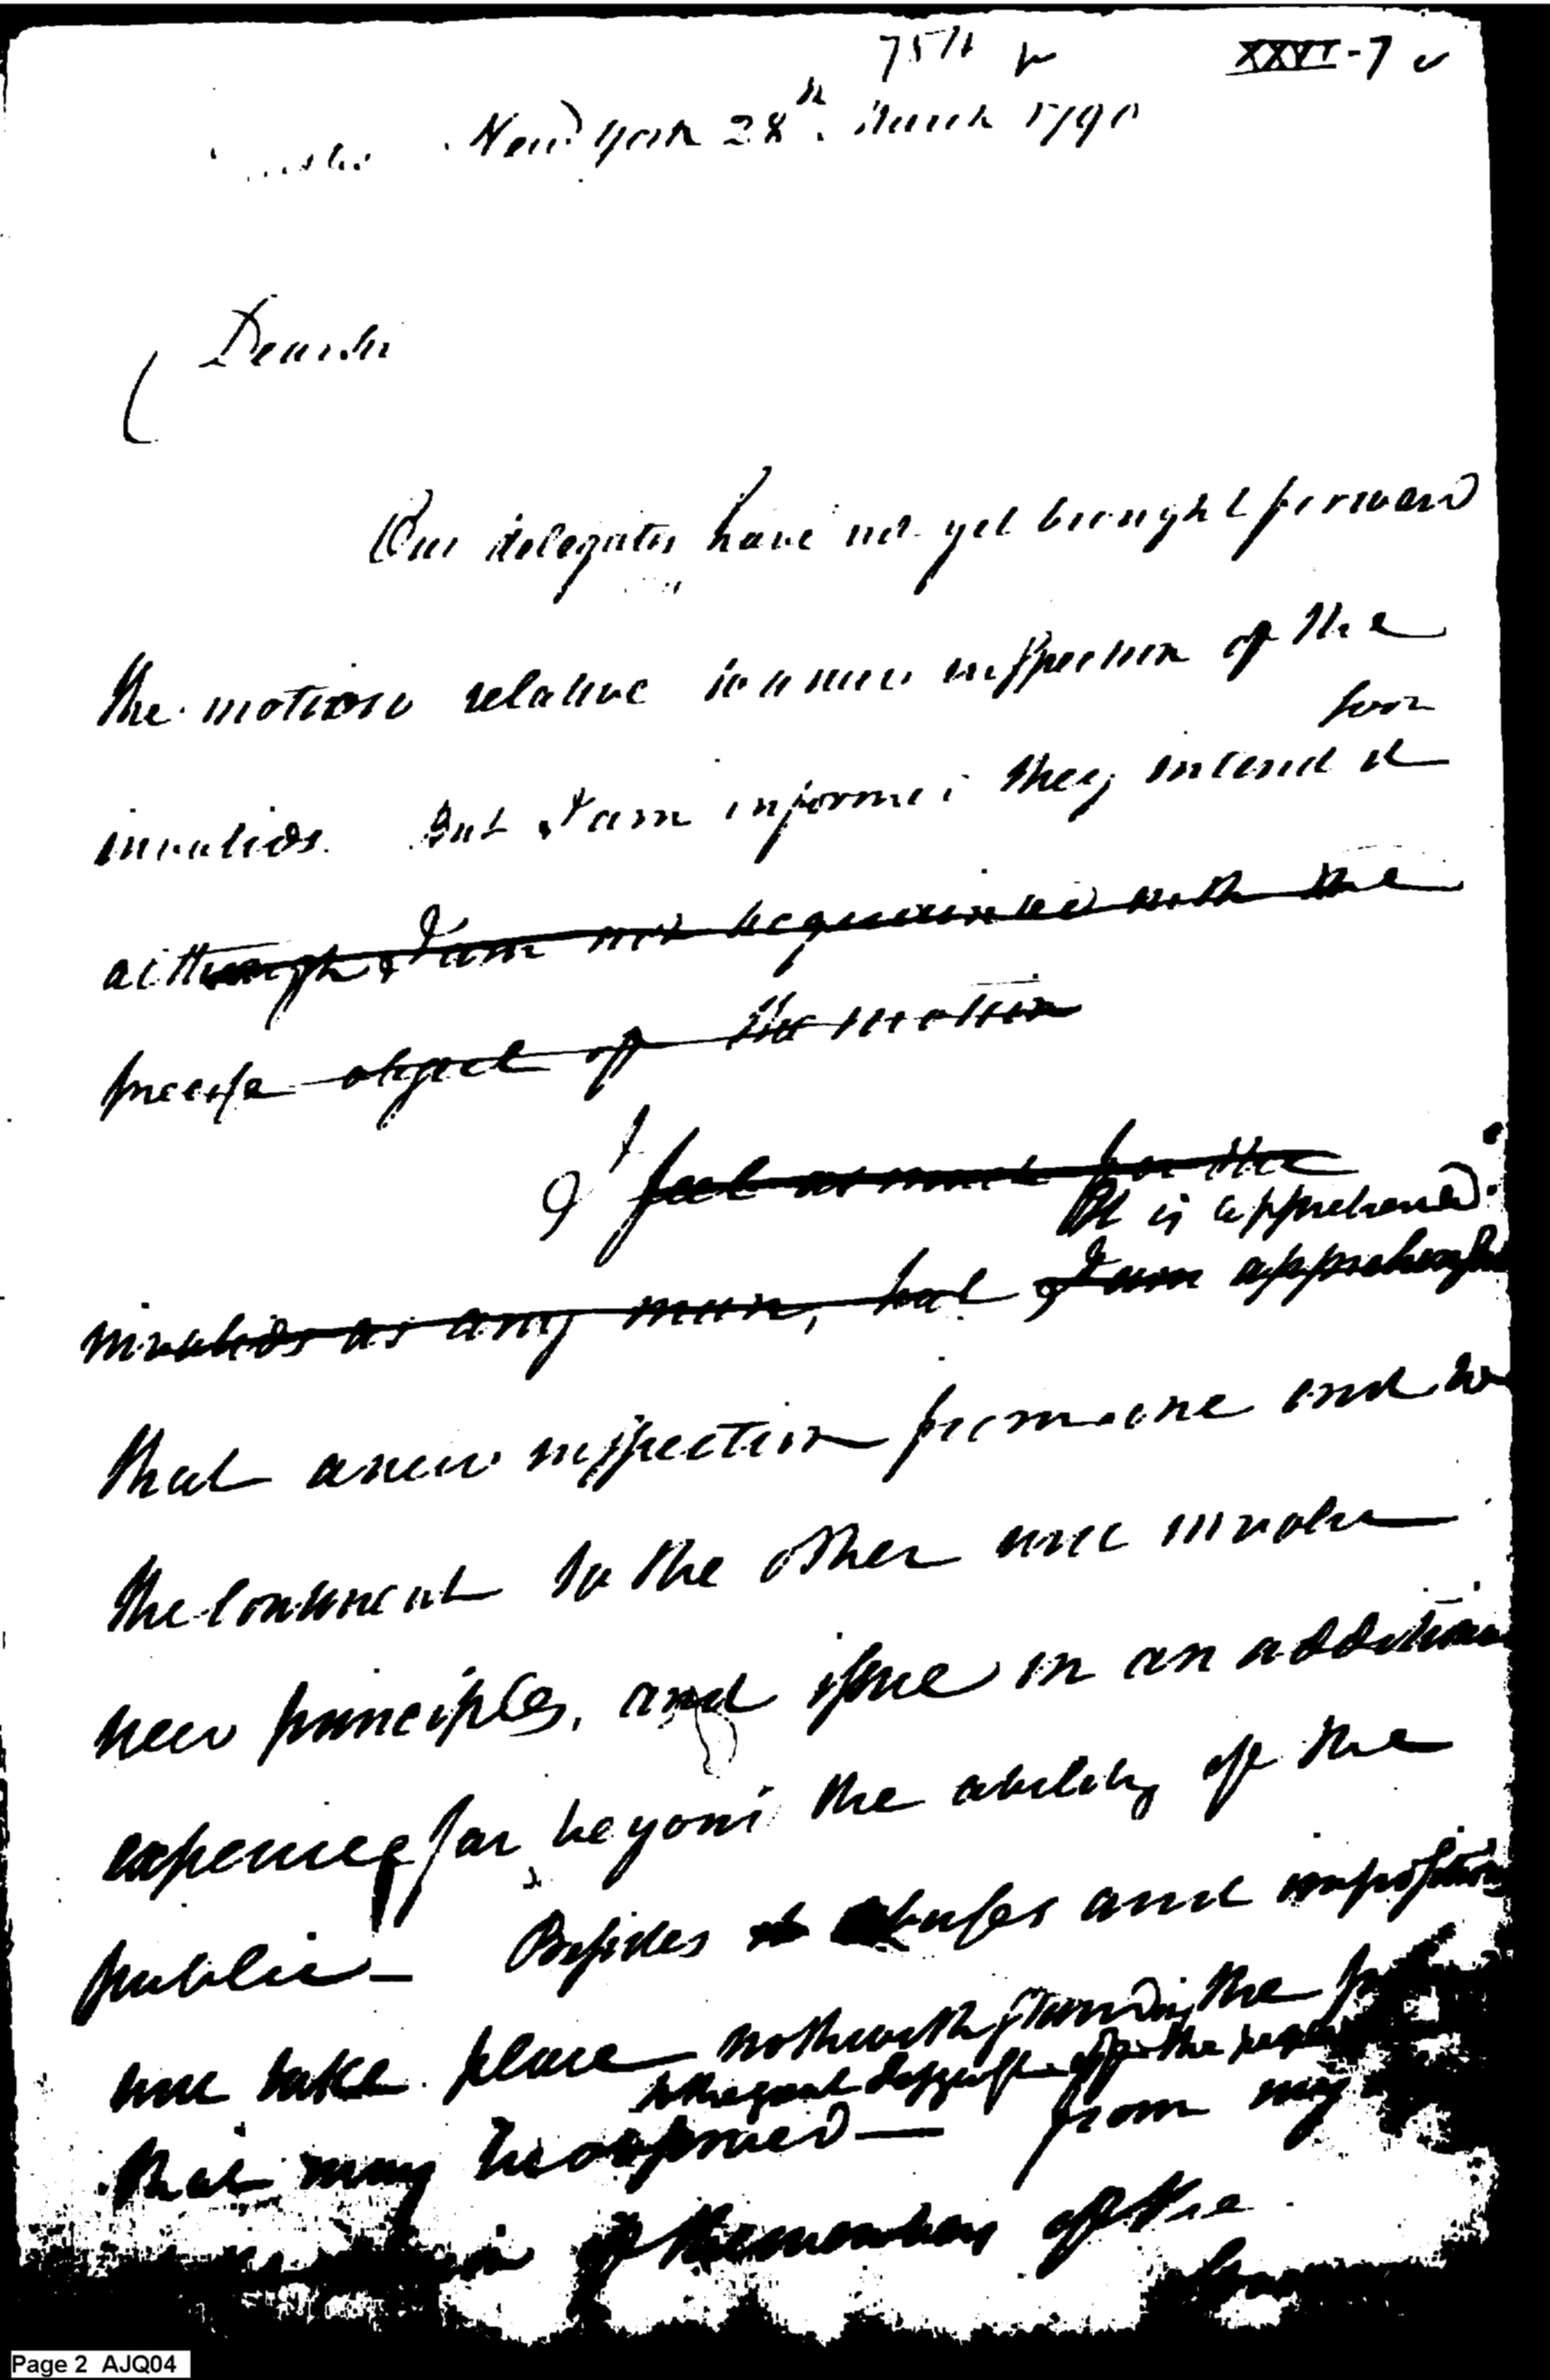 XXVI-7
New York 28th. March 1790
Dear sir
Our delegates have not yet brought forward
the motion relative to a new inspection of the
soon
invalids. But I am informed they intend it
although I am not acquainted with the
precise object of the motion
I feel as much for the
It is apprehend
invalids as any man, but I am apprehensive
that a new inspection from one end
the continent to the other will involve
new principles, and issue in an additional
expence far beyond the ability of the
public — Besides abuses and impositions
will take place notwithstanding the
of the
that may be observed — from my
of the
Page 2 AJQ04